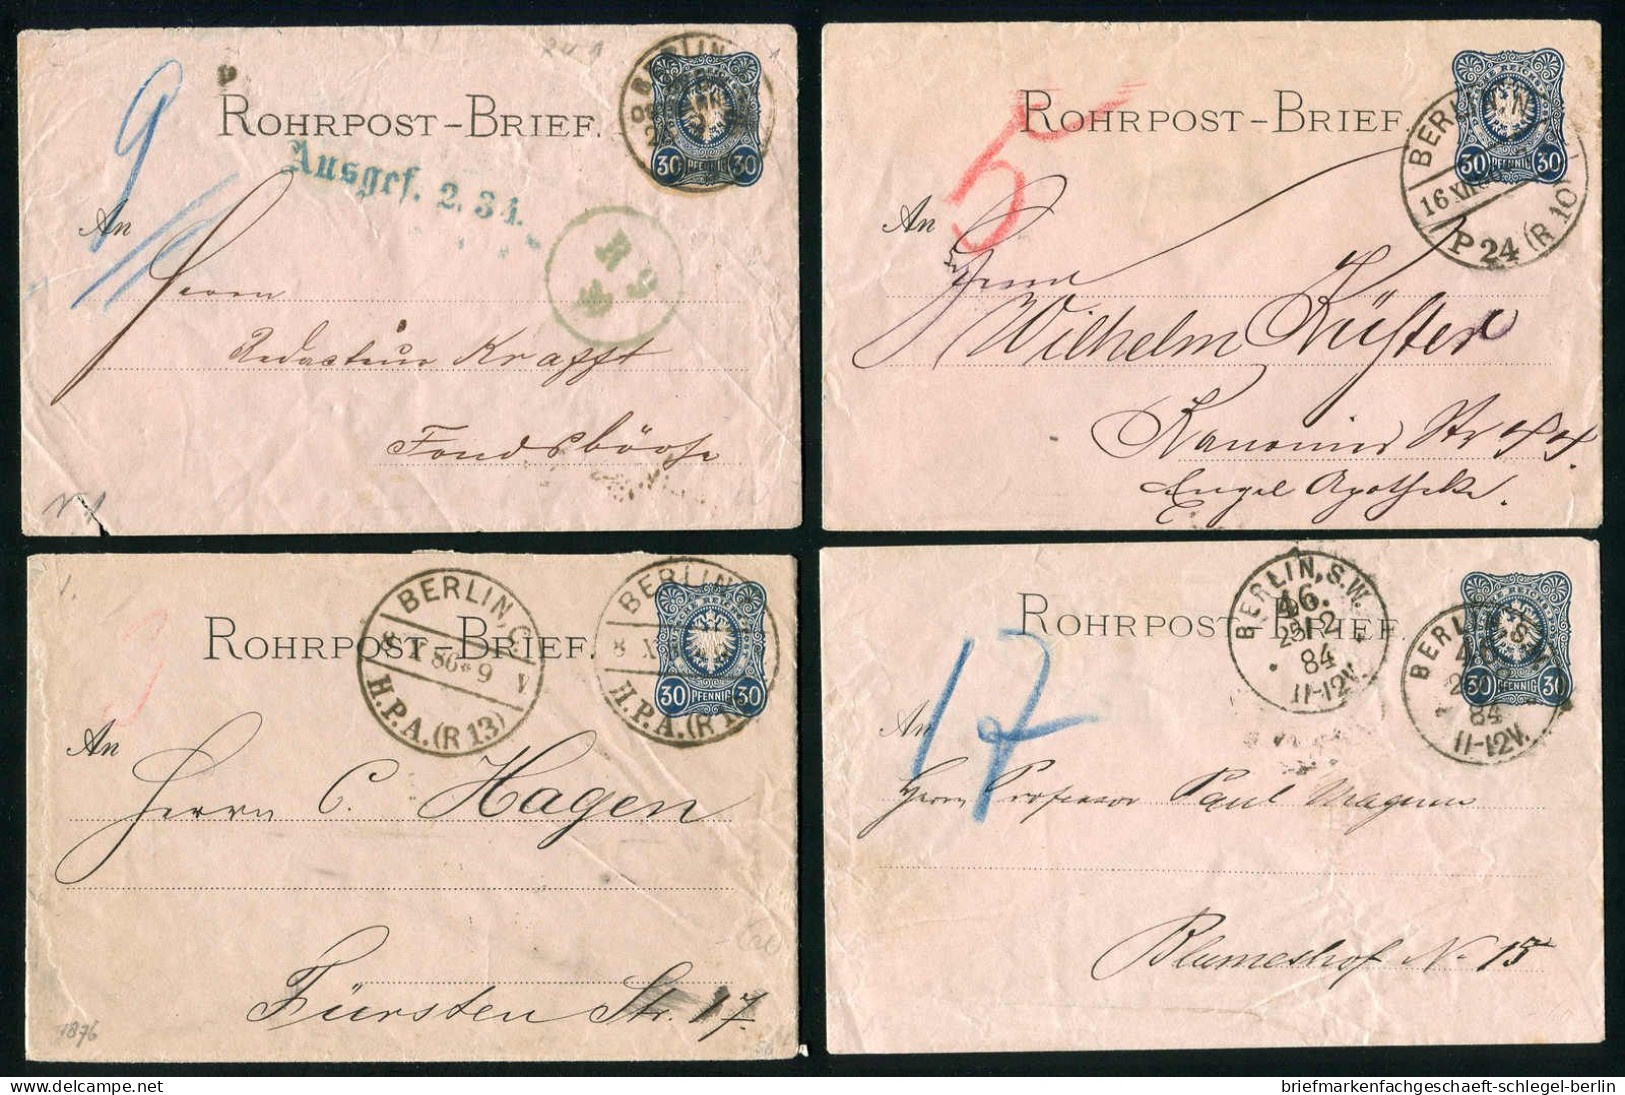 ROHRPOST-BRIEF.
BERLIN
30 PFENNIG 30
9
Ausgef. 2. 34.
An
Herrn
Redacteur Krafft
Fondsbörse
ROHRPOST-BRIEF
BERLIN, W.
16 XII
P 24 (R 10)
30 PFENNIG 30
5
An
Herrn
Wilhelm Küster
Kanonier Str 44.
Engel Apotheke.
ROHRPOST-BRIEF.
BERLIN, C.
8 X 86 * 9 V
H.P.A. (R 13)
BERLIN
8 X
H.P.A. (R 1
30 PFENNIG 30
An
Herrn C. Hagen
Fürsten Str. 17.
1876
ROHRPOST-BRIEF.
BERLIN, S.W.
46.
25 12
84
11-12V.
BERLIN, S.
84
11-12V.
30 PFENNIG 30
17
An
Herrn Professor Paul
Blumeshof No 15
briefmarkenfachgeschaeft-schlegel-berlin